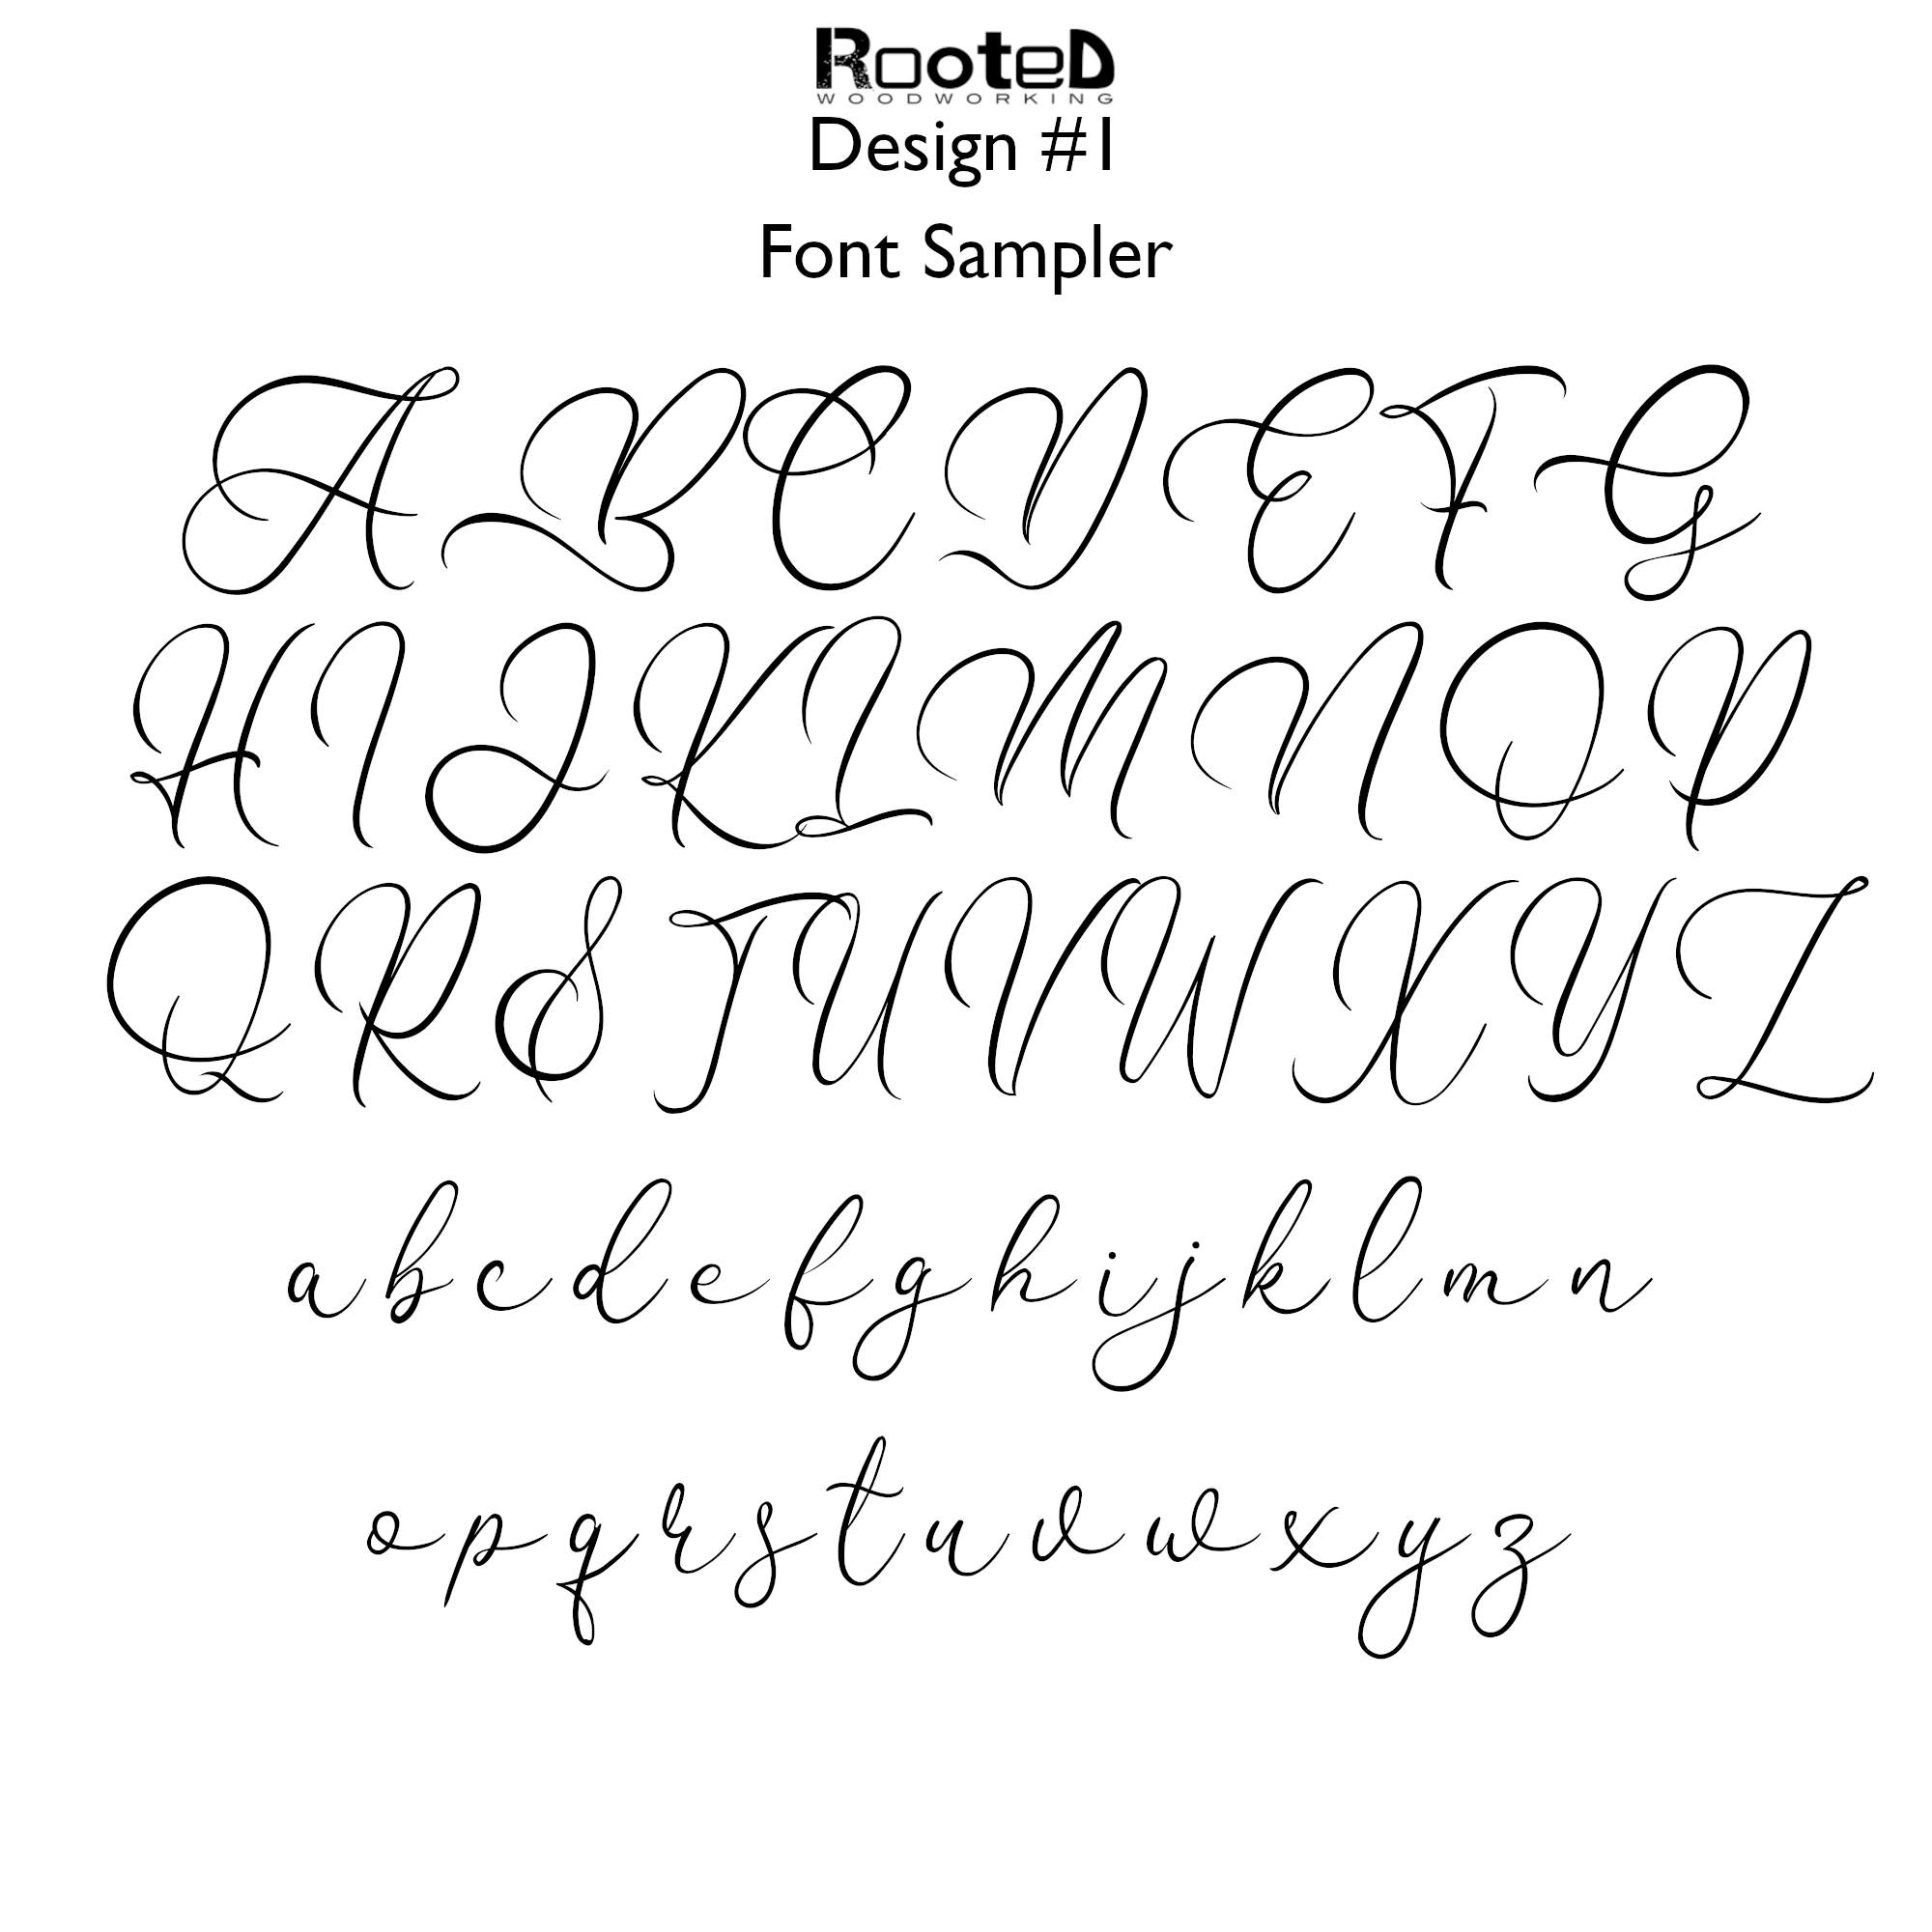 RooteD
WOODWORKING
Design #1
Font Sampler
A B C D E F G
H I J K L M N O P
Q R S T U V W X Y Z
a b c d e f g h i j k l m n
o p q r s t u v w x y z